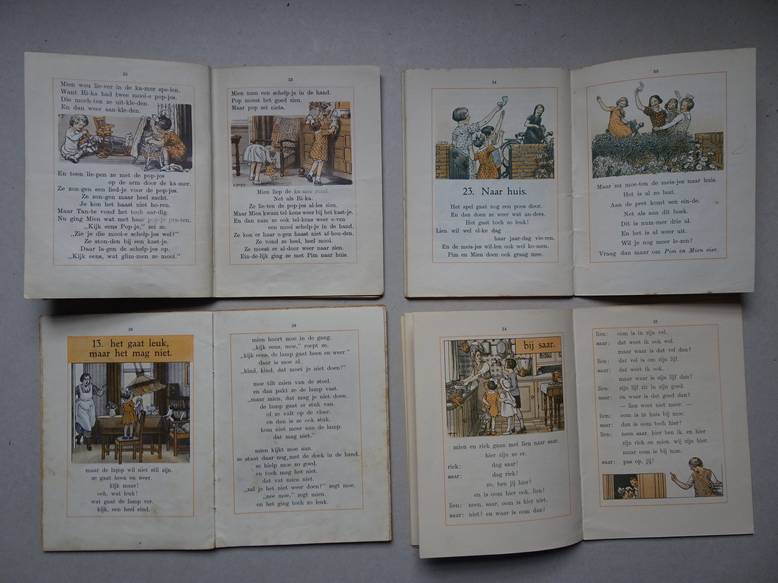 52
Mien wou lie-ver in de ka-mer spe-len.
Want Ri-ka had twee mooi-e pop-jes.
Die moch-ten ze uit-kle-den.
En dan weer aan-kle-den.
En toen lie-pen ze met de pop-jes
op de arm door de ka-mer.
Ze zon-gen een lied-je voor de pop-jes.
Ze zon-gen maar heel zacht.
Je kon het haast niet ho-ren.
Maar Tan-te vond het toch aar-dig.
Nu ging Mien wat met haar pop-je pra-ten.
„Kijk eens Pop-je," zei ze.
„Zie je die mooi-e schelp-jes wel?"
Ze ston-den bij een kast-je.
Daar la-gen de schelp-jes op.
„Kijk eens, wat glim-men ze mooi."
53
Mien nam een schelp-je in de hand.
Pop moest het goed zien.
Maar pop zei niets.
Mien liep de ka-mer rond.
Net als Ri-ka.
Ze lie-ten de pop-jes al-les zien.
Maar Mien kwam tel-kens weer bij het kast-je.
En dan nam ze ook tel-kens weer e-ven
een mooi schelp-je in de hand.
Ze kon er haar o-gen haast niet af-hou-den.
Ze vond ze heel, heel mooi.
Ze moest er al-door weer naar zien.
Ein-de-lijk ging ze met Pim naar huis.
54
23. Naar huis.
Het spel gaat nog een poos door.
En dan doen ze weer wat an-ders.
Het gaat toch zo leuk!
Lien wil wel al-ke dag
haar jaar-dag vie-ren.
En de meis-jes wil-len ook wel ko-men.
Pim en Mien doen ook graag mee.
Maar nu moe-ten de meis-jes naar huis.
Het is al zo laat.
Aan de pret komt een ein-de.
Net als aan dit boek.
Dit is num-mer drie al.
En het is al weer uit.
Wil je nog meer le-zen?
Vraag dan maar om Pim en Mien vier.
28
13. het gaat leuk,
maar het mag niet.
maar de lamp wil niet stil zijn.
ze gaat heen en weer.
kijk maar!
och, wat leuk!
wat gaat de lamp ver.
kijk, een heel eind.
29
mien hoort moe in de gang.
„kijk eens, moe," roept ze.
„kijk eens, de lamp gaat heen en weer"
daar is moe al.
„kind, kind, dat moet je niet doen!"
moe tilt mien van de stoel.
en dan pakt ze de lamp vast.
„maar mien, dat mag je niet doen.
de lamp gaat er stuk van.
of ze valt op de vloer.
en dan is ze ook stuk.
kom niet meer aan de lamp.
dat mag niet."
mien kijkt moe aan.
ze staat daar nog met de doek in de hand.
ze hielp moe zo goed.
en toch mag het niet.
dat vat mien niet.
„zul je het niet weer doen?" zegt moe.
„nee moe," zegt mien.
en het ging toch zo leuk.
24
bij saar.
mien en riek gaan met lien naar saar.
hier zijn ze er.
riek: dag saar!
saar: dag riek!
zo, ben jij hier?
en is oom hier ook, lien!
lien: neen, saar, oom is hier niet.
saar: niet? en waar is oom dan?
25
lien: oom is in zijn vel.
saar: dat weet ik ook wel.
maar waar is dat vel dan?
lien: dat vel is om zijn lijf.
saar: dat weet ik ook.
maar waar is zijn lijf dan?
lien: zijn lijf zit in zijn goed.
saar: en waar is dat goed dan?
— lien weet niet meer. —
lien: oom is in huis bij moe.
saar: dan is oom toch hier?
lien: neen saar, hier ben ik. en hier
zijn riek en mien. wij zijn hier.
maar oom is bij moe.
saar: pas op, jij!